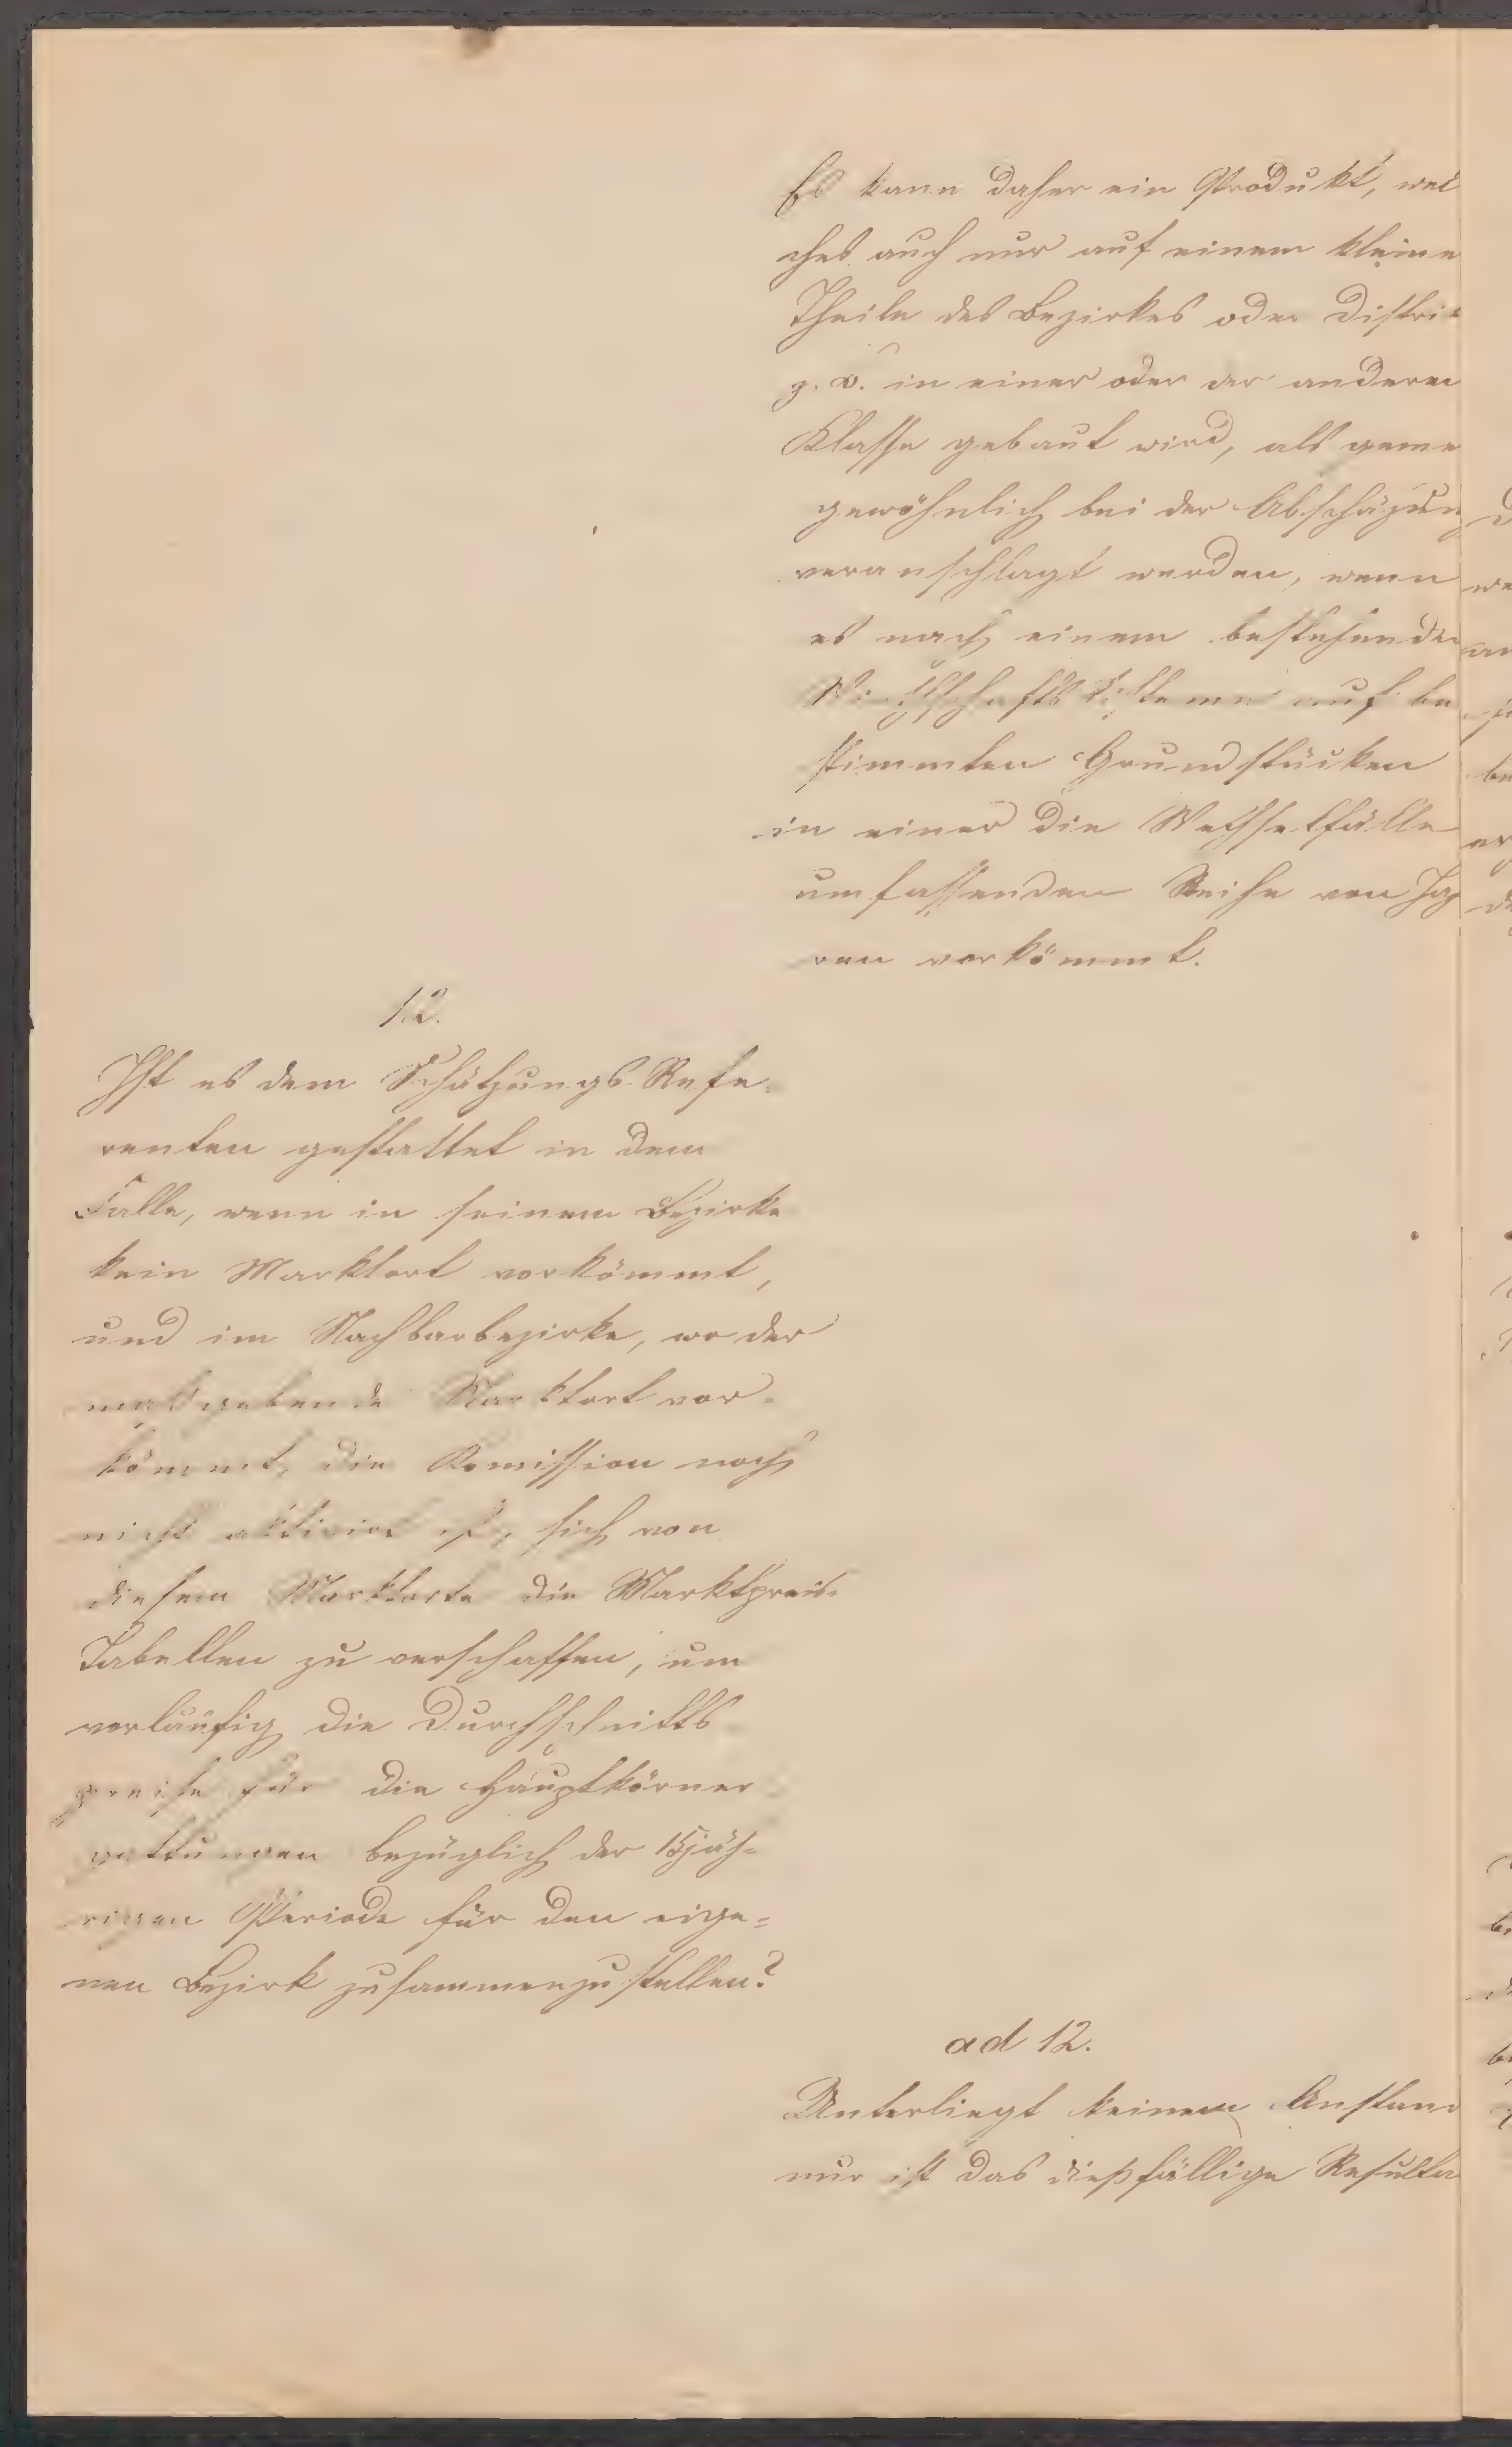 Es kann daher ein Produkt, wel
ches auch nur auf einem kleine
Theile des Bezirkes oder Distri
z. B. in einer oder der anderen
Klasse gebaut wird, als geme
gewöhnlich bei der Abschäzung
veranschlagt werden, wenn
es nach einem bestehenden
Wirthschaftssisteme auf be
stimmten Grundstücken
in einer die Wechselfälle
umfassenden Reihe von Jah
ren vorkömmt.
12.
Ist es dem Schätzungs-Refe-
renten gestattet in dem
Falle, wenn in seinem Bezirke
kein Marktort vorkömmt,
und im Nachbarbezirke, wo der
maßgebende Marktort vor-
kömmt, die Komission noch
nicht aktivirt ist, sich von
diesem Marktorte die Marktpreis-
Tabellen zu verschaffen, um
vorläufig die Durchschnitts
preise für die Hauptkörner
gattungen bezüglich der 15jäh-
rigen Periode für den eige=
nen Bezirk zusammenzustellen?
ad 12.
Unterliegt keinem Anstand
nur ist das dießfällige Resulta